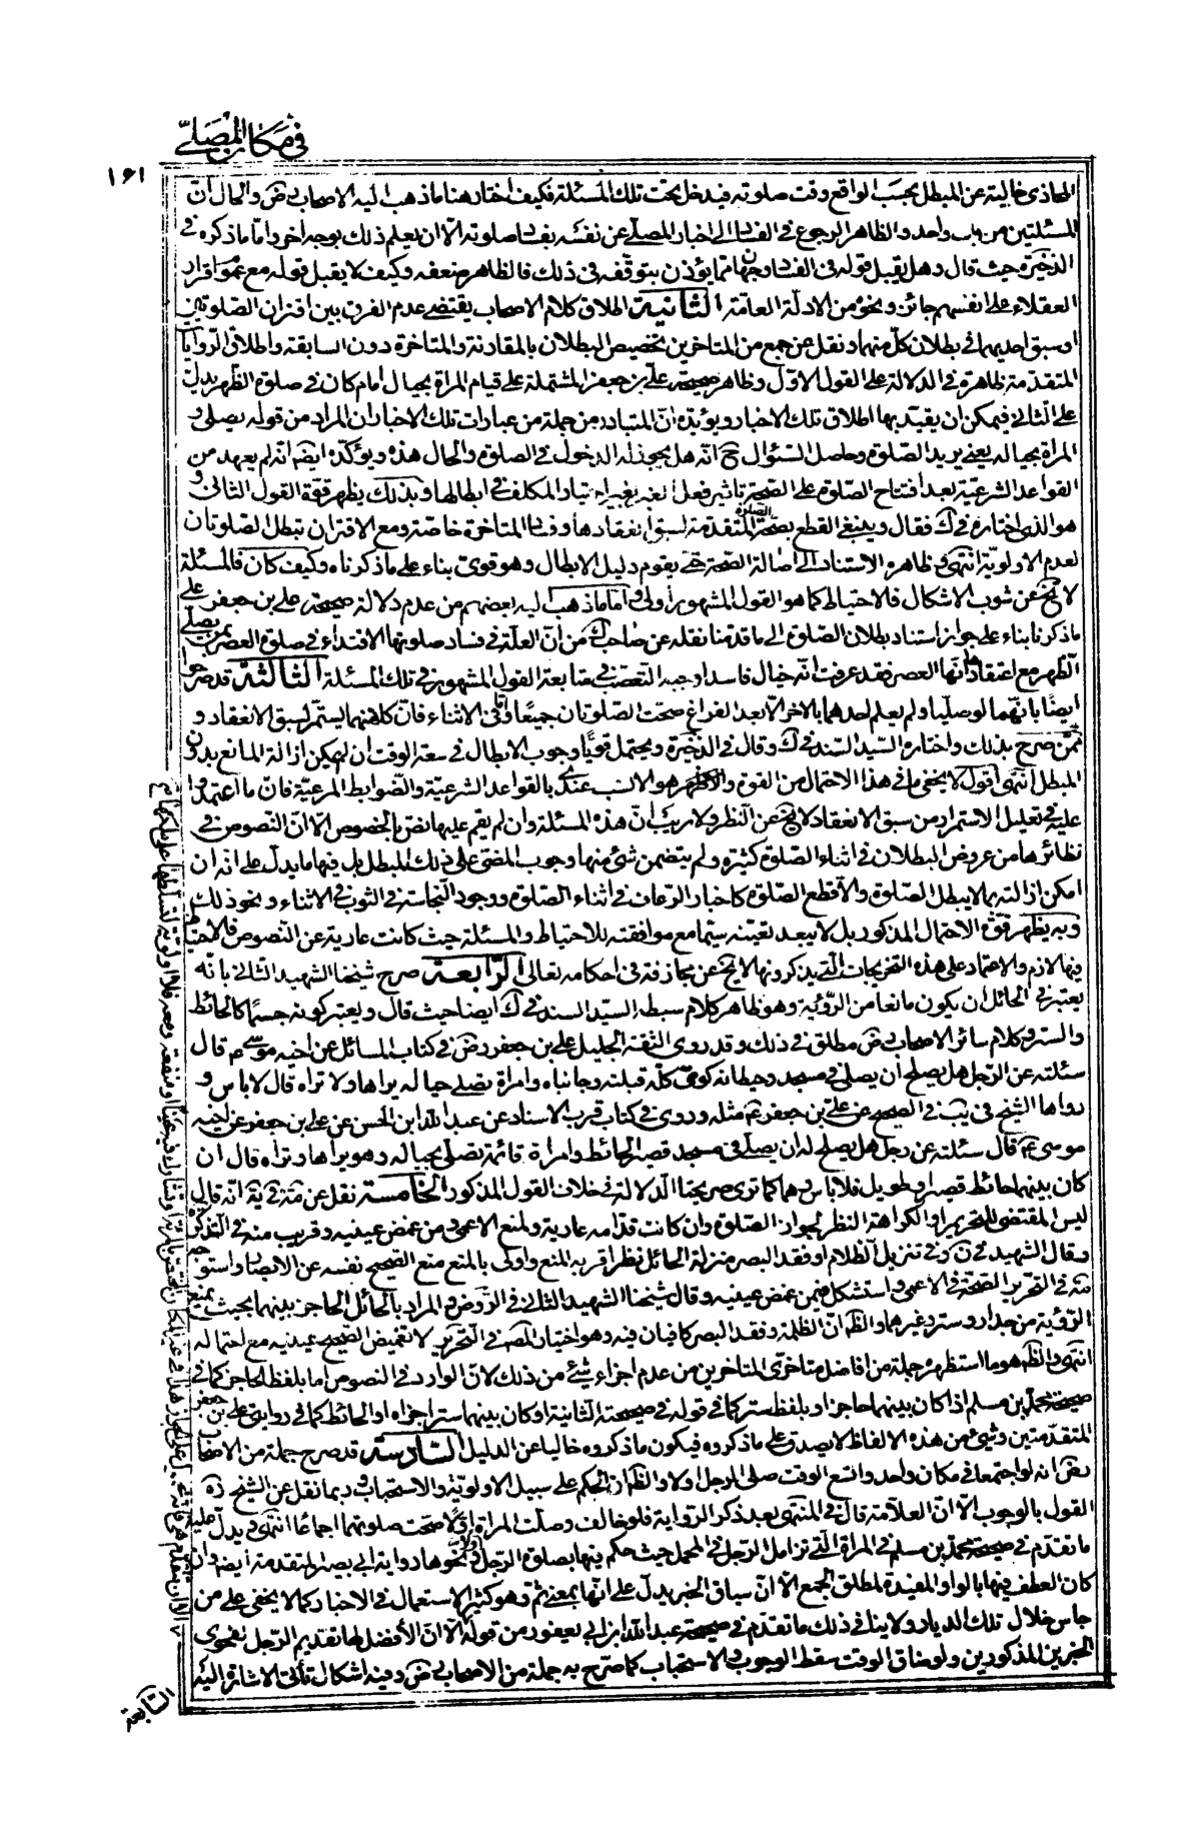 في مكان المصلي
١٦١
المحاذي خالية عن المبطل بحسب الواقع وقت صلوته فيدخل تحت تلك المسئلة فكيف اختار هنا ما ذهب اليه الاصحاب رض والحال ان
المسئلتين من باب واحد والظاهر الرجوع في الفساد الى اخبار المصلي عن نفسه بفساد صلوته الا ان يعلم ذلك بوجه اخر واما ما ذكره في
الذخيرة حيث قال وهل يقبل قوله في الفساد وجهان مما يؤذن بتوقفه في ذلك فالظاهر ضعفه وكيف لا يقبل قوله مع عموم اقرار
العقلاء على انفسهم جائز ونحوه من الادلة العامة الثانية اطلاق كلام الاصحاب يقتضي عدم الفرق بين اقتران الصلوتين
او سبق احديهما في بطلان كل منهما ونقل عن جمع من المتاخرين تخصيص البطلان بالمقارنة والمتاخرة دون السابقة واطلاق الروايات
المتقدمة ظاهرة في الدلالة على القول الاول وظاهر صحيحة علي بن جعفر المشتملة على قيام المراة بحيال امام كان في صلوة الظهر يدل
على الثاني فيمكن ان يقيد بها اطلاق تلك الاخبار ويؤيده ان المتبادر من جملة من عبارات تلك الاخبار ان المراد من قوله يصلي و
المراة بحياله يعني يريد الصلوة وحاصل السئوال ح انه هل يجوز له الدخول في الصلوة والحال هذه ويؤكده ايضا انه لم يعهد من
القواعد الشرعية بعد افتتاح الصلوة على الصحة تاثير فعل الغير بغير اختيار المكلف في ابطالها وبذلك يظهر قوة القول الثاني و
هو الذي اختاره في ك فقال وينبغي القطع بصحة الصلوة المتقدمة لسبق انعقادها وفساد المتاخرة خاصة ومع الاقتران تبطل الصلوتان
لعدم الاولوية انتهى وظاهره الاستناد الى اصالة الصحة حتى يقوم دليل الابطال وهو قوي بناء على ما ذكرناه وكيف كان فالمسئلة
لا تخ عن شوب الاشكال فالاحتياط كما هو القول المشهور اولى واما ما ذهب ليه بعضهم من عدم دلالة صحيحة علي بن جعفر على
ما ذكرنا بناء على جواز استناد بطلان الصلوة الى ما قدمنا نقله عن صاحب ك من ان العلة في فساد صلوتها الاقتداء في صلوة العصر بمن يصلي
الظهر مع اعتقادها انها العصر فقد عرفت انه خيال فاسد اوجبه التعصب في متابعة القول المشهور في تلك المسئلة الثالثة قد صرحوا
ايضا بانهما لو صليا ولم يعلم احدهما بالاخر الا بعد الفراغ صحت الصلوتان جميعا وفي الاثناء فان كلا منهما يستمر لسبق الانعقاد و
ممن صرح بذلك واختاره السيد السند في ك وقال في الذخيرة ويحتمل قويا وجوب الابطال في سعة الوقت ان لم يمكن ازالة المانع بدون
المبطل انتهى اقول لا يخفى ما في هذا الاحتمال من القوة والاظهر هو الانسب عندي بالقواعد الشرعية والضوابط المرعية فان ما اعتمدوا
عليه في تعليل الاستمرار من سبق الانعقاد لا يخ عن النظر ولا ريب ان هذه المسئلة وان لم يقم عليها نص بالخصوص الا ان النصوص في
نظائرها من عروض البطلان في اثناء الصلوة كثيرة ولم يتضمن شئ منها وجوب المضي على ذلك المبطل بل فيها ما يدل على انه ان
امكن ازالته بما لا يبطل الصلوة والا قطع الصلوة كاخبار الرعاف في اثناء الصلوة ووجود النجاسة في الثوب في الاثناء ونحو ذلك
وبه يظهر قوة الاحتمال المذكور بل لا يبعد تعينه سيما مع موافقته للاحتياط والمسئلة حيث كانت عارية عن النصوص فالاحتياط
فيها لازم والاعتماد على هذه التخريجات التي يذكرونها لا يخ عن مجازفة في احكامه تعالى الرابعة صرح شيخنا الشهيد الثاني بانه
يعتبر في الحائل ان يكون مانعا من الرؤية وهو ظاهر كلام سبطه السيد السند في ك ايضا حيث قال ويعتبر كونه جسما كالحائط
والستر وكلام سائر الاصحاب رض مطلق في ذلك وقد روى الثقة الجليل علي بن جعفر رض في كتاب المسائل عن اخيه موسى ع قال
سئلته عن الرجل هل يصلح ان يصلي في مسجد وحيطانه كوى كله قبلته وجانباه وامراة تصلي حياله يراها ولا تراه قال لا باس و
رواها الشيخ في يب في الصحيح عن علي بن جعفر ع مثله وروى في كتاب قرب الاسناد عن عبد الله ابن الحسن عن علي بن جعفر عن اخيه
موسى ع قال سئلته عن رجل هل يصلح له ان يصلي في مسجد قصير الحائط وامراة قائمة تصلي بحياله وهو يراها وتراه قال ان
كان بينهما حائط قصير او طويل فلا باس وهما كما ترى صريحتا الدلالة في خلاف القول المذكور الخامسة نقل عن مة في ية انه قال
ليس المقتضي للتحريم او الكراهة النظر لجواز الصلوة وان كانت قدامه عارية ولمنع الاعمى ومن غمض عينيه وقريب منه في التذكرة
وقال الشهيد في ن وفي تنزيل الظلام او فقد البصر منزلة الحائل نظر اقربه المنع واولى بالمنع منع الصحيح نفسه عن الابصار واستوجه
مة في التحرير الصحة في الاعمى واستشكل فيمن غمض عينيه وقال شيخنا الشهيد الثاني في الروض والمراد بالحائل الحاجز بينهما بحيث يمنع
الرؤية من جدار وستر وغيرهما والظ ان الظلمة وفقد البصر كافيان فيه وهو اختيار المص في التحرير لا تغميض الصحيح عينيه مع احتماله
انتهى والظ هو ما استظهره جملة من افاضل متاخري المتاخرين من عدم اجزاء شيئ من ذلك لان الوارد في النصوص اما بلفظ الحاجز كما في
صحيحة محمد بن مسلم اذا كان بينهما حاجز او بلفظ ستر كما في قوله في صحيحته الثانية او كان بينهما ستر اجزاه او الحائط كما في روايتي علي بن جعفر
المتقدمتين وشئ من هذه الالفاظ لا يصدق على ما ذكروه فيكون ما ذكروه خاليا عن الدليل السادسة قد صرح جملة من الاصحاب
رض انه لو اجتمعا في مكان واحد واتسع الوقت صلى الرجل اولا والظ ان الحكم على سبيل الاولوية والاستحباب وربما نقل عن الشيخ ره
القول بالوجوب الا ان العلامة قال في المنتهى بعد ذكر الرواية فلو خالف وصلت المراة اولا صحت صلوتهما اجماعا انتهى ويدل عليه
ما تقدم في صحيحة محمد بن مسلم في المراة التي تزامل الرجل في المحمل حيث حكم فيها بصلوة الرجل اولا ونحوها رواية ابي بصير المتقدمة ايضا وان
كان العطف فيها بالواو المفيدة لمطلق الجمع الا ان سياق الخبر يدل على انها بمعنى ثم وهو كثير الاستعمال في الاخبار كما لا يخفى على من
جاس خلال تلك الديار ولا ينافي ذلك ما تقدم في صحيحة عبد الله ابن ابي يعفور من قوله الا ان الافضل لها تقديم الرجل بفحوى
الخبرين المذكورين ولو ضاق الوقت سقط الوجوب والاستحباب كما صرح به جملة من الاصحاب رض وفيه اشكال تاتي الاشارة اليه
السابعة